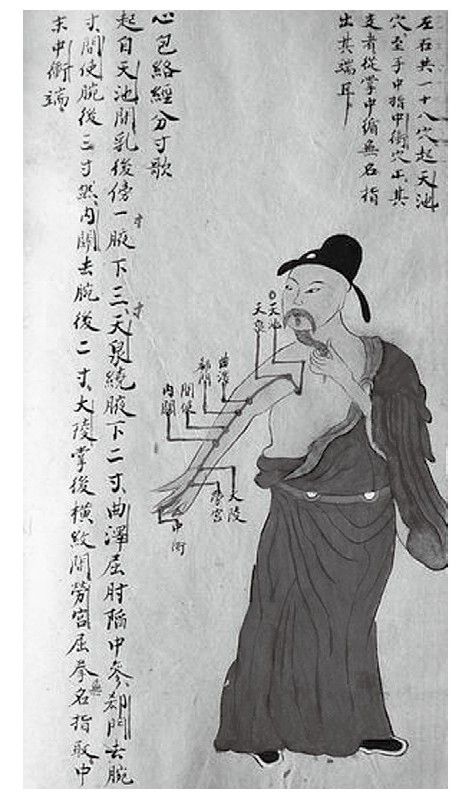 左右共一十八穴起天池
穴至于中指中衝穴止其
支者從掌中循無名指
出其端耳
心包絡經分寸歌
起自天池間乳後傍一寸腋下三寸天泉繞腋下二寸曲澤屈肘陷中參郄門去腕
寸間使腕後三寸然内關去腕後二寸大陵掌後横紋間勞宮屈拳無名指取中
末中衝端
天池
天泉
曲澤
郄門
間使
内關
大陵
勞宮
中衝